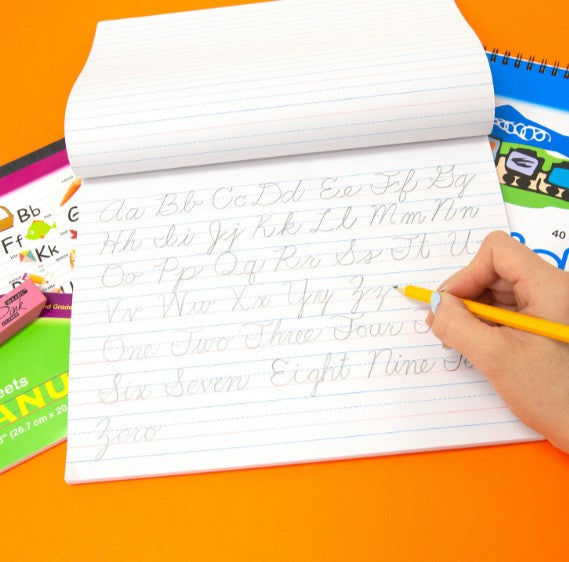 Aa Bb Cc Dd Ee Ff Gg
Hh Ii Jj Kk Ll Mm Nn
Oo Pp Qq Rr Ss Tt U
Vv Ww Xx Yy Zz
One Two Three Four
Six Seven Eight Nine Te
Zero
Bb
Ff
Kk
nd Grade
Pink
eets
ANU
8" (26.7 cm x 20
40